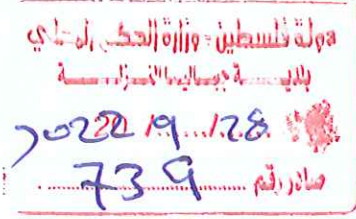 دولة فلسطين - وزارة الحكم المحلي
بلدية جباليا النزلة
2022/9/28
صادر رقم 739